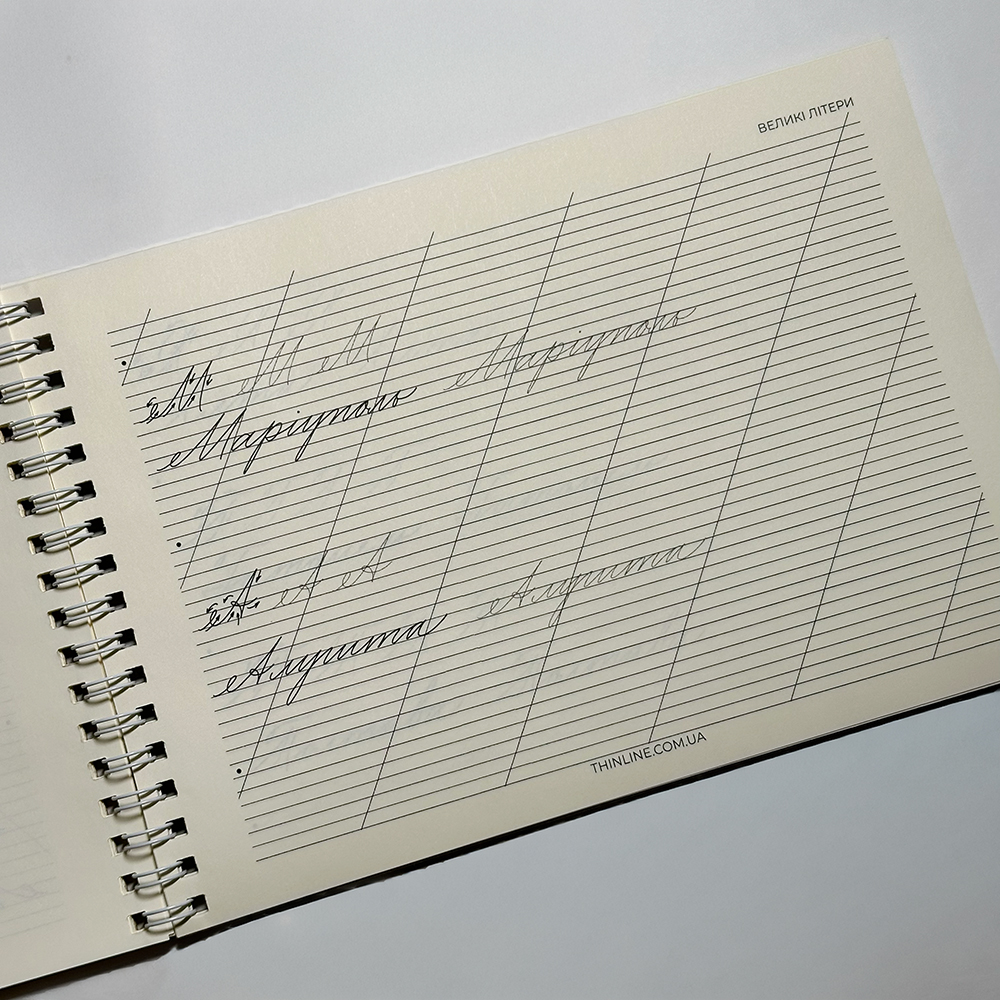 ВЕЛИКІ ЛІТЕРИ
М М М Маріуполь
Маріуполь
А А А Алушта
Алушта
THINLINE.COM.UA